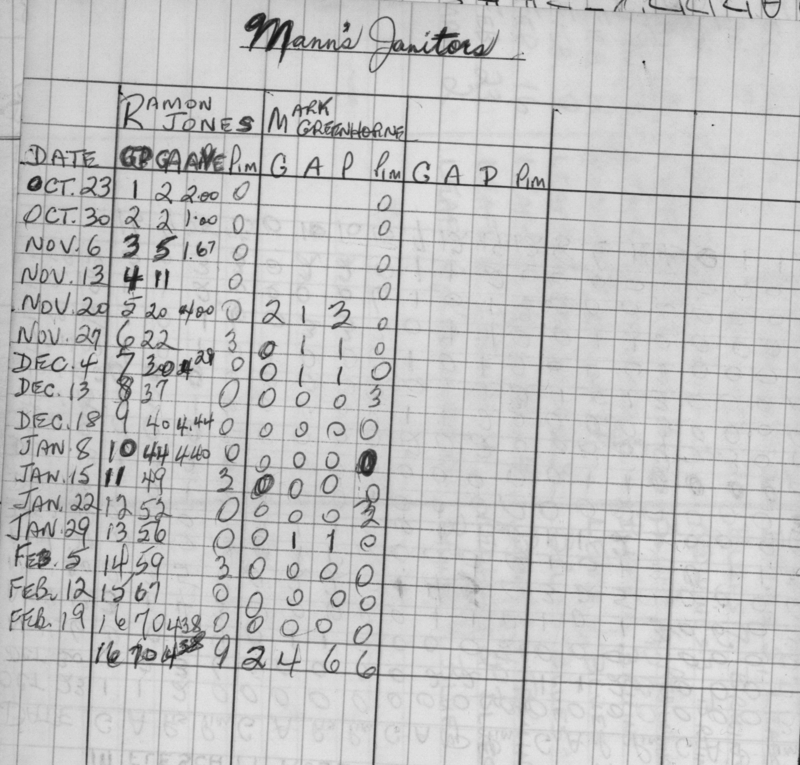 Mann's Janitors
RAMON JONES MARK GREENHORNE
DATE GP GA AVE Pim G A P Pim G A P Pim
OCT. 23 1 2 2.00 0 0
OCT. 30 2 2 1.00 0 0
NOV. 6 3 5 1.67 0 0
NOV. 13 4 11 0 0
NOV. 20 5 20 4.00 0 2 1 3 0
NOV. 27 6 22 3 0 1 1 0
DEC. 4 7 30 4.29 0 0 1 1 0
DEC. 13 8 37 0 0 0 0 3
DEC. 18 9 40 4.44 0 0 0 0 0
JAN. 8 10 44 4.40 0 0 0 0 0
JAN. 15 11 49 3 0 0 0 0
JAN. 22 12 52 0 0 0 0 3
JAN. 29 13 56 0 0 1 1 0
FEB. 5 14 59 3 0 0 0 0
FEB. 12 15 67 0 0 0 0 0
FEB. 19 16 70 4.38 0 0 0 0 0
16 70 4.38 9 2 4 6 6